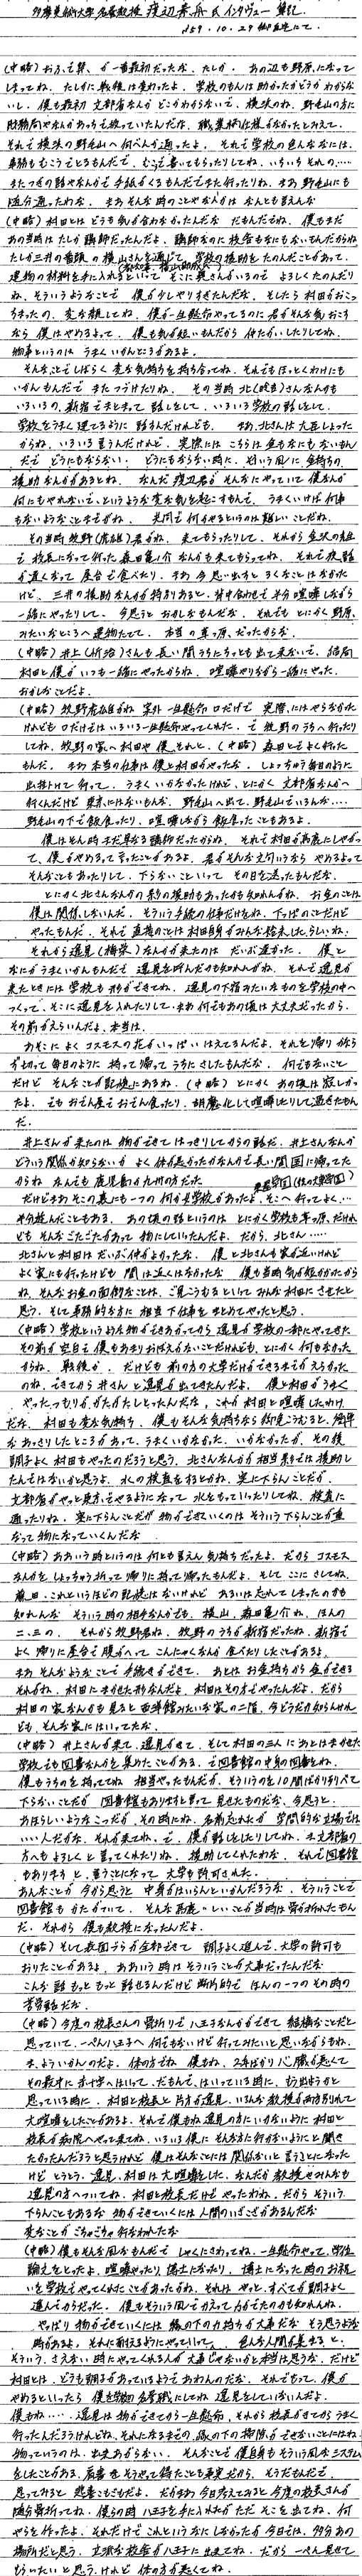 多摩美術大学名誉教授 渡辺素舟氏インタヴュー筆記
S59.10.29 御自宅にて.
(中略) おぶって算、が一番最初だったな. たしか. あの辺も野原になって
しまってね. たしかに戦後は変わったよ. 学校のもんは助かったかどうかわからな
いし、僕も最初文部省なんかどこかわからないで、
それで横水の野毛山へ何べんか通ったよ. それで学校の色んなな
事務もむこうでとるもんだで、むこうで書いてもらったりしてね.
またつぎの話やなんかで手紙がくるもんだでまた行ったりね. まあ野毛山にも
随分通ったわな. まあそんな時のことやなんかはなんとも言えんな
(中略) 村田とはどうも気が合わなかったんだな だもんだでね. 僕もまだ
あの当時はたしか講師だったんだよ. 講師なのに校舎もなにもないもんだからね
たしか三井の番頭の横山さんを通じて、学校の援助をたのんだことがあって.
建物の材料を手に入れるといって そこに親さんがいるので よろしくたのんだり
ね. そういうようなことで 僕が少しやりすぎたんだな. そしたら村田がおこっ
ちまったの. 変な顔してね. 僕が一生懸命やってるのに君がそんな気おこす
なら 僕はやめるよって. 僕も気が短いもんだから 仲たがいしたりしてね.
物事というのは うまくいかんところがあるよ.
そんなことでしばらく変な気持ちを持ち合ってね. それでもほっとくわけにも
いかんもんだで またつづけたりね. その当時北(昤吉)さんなんかも
いろいろの、新宿でまとまって話をして. いろいろ学校の話をして.
学校をうまく建てるように話すんだけれども. まあ. 北さんは大臣しょった
からね. いろいろ言うんだけれど. 実際にはこちらは金もなにもないもん
だで どうにもならない. どうにもならない時に、そういう風に金持ちの
援助なんかがあるとね. なんだ渡辺君がそんなにやっていて 僕なんか
何にもやれないで. というような変な気を起こすもんで. うまくいけば何事
もないようなことまでがね. 共同で何かやるというのは難しいことだね.
その当時牧野(虎雄)君がね. 来てもらったりして. それから金沢の方
で校長になって行った森田亀之介なんかも来てもらってね. それで夜話
が遅くなって 屋台で食べたり. まあ今思い出すとろくなことはなかった
けど、三井の援助なんかが特別あると、背中合わせで半分喧嘩しながら
一緒にやったりして. 今思うと おかしなもんだな. それでも とにかく野原
みたいなところへ建物たてて. 本当の草っ原だったからな.
(中略) 井上(忻治)さんも長い間うちにちっとも出て来ないで. 結局
村田と僕がいつも一緒にやったからね. 喧嘩やりながら一緒にやった.
おかしなことだよ.
(中略) 牧野虎雄君がね. 案外一生懸命口だけで 実際にはやらなかった
けれども 口だけではいろいろ一生懸命やってくれた. で 牧野のうちへ行ったり
してね. 牧野の家へ村田や僕、それと、(中略) 森田とでよく行った
もんだ. まあ本当の仕事は僕と村田がやったな. しょっちゅう毎日のように
出掛けて行って. うまくいかなかったけれど、とにかく文部省なんかへ
行くんだけど 東京にはないもんな. 野毛山へ出て. 野毛山でいろんな....
野毛山の下で飯食ったり、喧嘩しながら飯食ったこともあるよ.
僕はそん時まだ単なる講師だったからね. それで村田が馬鹿にしやがっ
て、僕がやめるって言ったことがあるよ. 君がそんな文句いうなら やめるよって
そんなこともあったりして. 下らないこといって その日を送ったもんだな.
とにかく北さんなんかの多少の援助もあったかも知れんがね. お金のことは
僕は関係しないんだ. そういう手続の仕事だけをね. 下っぱのことだけど
やったもんだ. それで直接のことは村田自身がみんな始末したらしいね.
それから逸見(梅栄)なんかが来たのは だいぶ遅かった. 僕と
なにかうまくいかんもんだで 逸見を呼んだのかも知れんがね. それで逸見が
来たときには学校も形ができてね. 逸見の下宿みたいなものを学校の中へ
つくって、そこに逸見を入れたりして. まあ何でもあの頃は大丈夫だったから.
その前がえらいんだよ. 本当は.
あそこによくコスモスの花がいっぱいはえてるんだよ. それを帰りがけ
折っちゃって毎日のように 持って帰って うちにさしたもんだな. 何でもないこと
だけど そんなことが記憶にあるね. (中略) とにかく あの頃は寂しかっ
たよ. でも おでん屋でおでん食ったり、胡麻化して喧嘩したりして過ぎたもん
だ.
井上さんが来たのは 物ができて はっきりしてからの話だ. 井上さんなんか
どういう関係か知らないが よく体が悪かったかなんかで長い間国に帰ってた
からね なんでも鹿児島か九州の方だった.
だけどまあ その裏にも一つの何か女学校があったよ. そこへ行ってよく...
半分遊んだこともある. あの頃の話というのは とにかく学校も草っ原だけれ
ども そんなごたごたがあって 物にしていたんだよ. だから. 北さん.....
北さんと村田はだいぶ仲がよかったな. 僕と北さんも家が近いけれど
よく家にも行ったけども 間は近くはなかったな 僕も当時気が短かったから
ね. そんなお金の面倒なことは、ご免こうむるといって みんな村田にさせたと
思う. そして事務的な方に 相当下仕事をまとめてやったと思う.
(中略) 学校というような物ができあがってから 逸見が学校の一部にやってきた.
その前の空白を僕もあまりおぼえがないことだけれども、とにかく何もなかった
からね. 戦後が. だけども前の方の大学だけできるまでがえらかった
のね. できてから井さんと逸見が出てきたんだよ. 僕と村田がうまく
やったつもりががたがたしとったんだな. これが村田と喧嘩したわけ
だな. 村田も変な気持ち、僕もそんな気持ちなら御免こうむると. 簡単
なあっさりしたところがあって. うまくいかなかった. いかなかったが. その後
調子よく村田もやったのだろうと思う. 北さんなんかが相当裏では援助し
たんではないかと思うよ. 水の検査をするとかね. 実に下らんことだが.
文部省がやっと東京でやるようになって 水をもっていったりしてね. 検査に
通ったりね. 実に下らんことだが 物ができていくのはそういう下らんことが重
なって物になっていくんだな
(中略) ああいう時というのは何とも言えん気持ちだったよ. だから コスモス
なんかをしょっちゅう折って 帰りに持って帰ったもんだよ. そして ここにさしてね.
これというほどの記憶はないけれど あるいは忘れてしまったのかも
知れんな そういう時の相手なんかでも、横山、森田亀之介ね. ほんの
二、三の. それから牧野君ね. 牧野のうちが新宿だったね. 新宿で
よく帰りに屋台で腹がへって こんにゃくなんか食べたりしたことがあるよ.
まあそんなようなことで手続きができて. あとはお金持ちから金ができる
それがね. 村田にまかせた形なんだよ. 村田はその方でやったんだよ. だから
村田の家なんかも見ると西洋館みたいな家の二階、今どうだか知らんけれ
ども、そんな家にはいってたな.
(中略) 井上さんが来て. 逸見がきて. そして村田の三人にあとはまかせた.
学校でも図書なんかを集めたことがある. で図書館の中身の図書をね.
僕もうちのを持ってね 相当やったもんだが、そういうのを10間ばかり列べて
下らないことだが 図書館もありますと言って見せたものだな. 今思うと.
あほらしいようなこったが. その時にね. 名前忘れたが 学問的な立場では
....人だがな. それが来てね. で、僕が話をしたりしてね. 文部省の
方へもよろしくと言ってくれたりね. 援助してくれたわな. それで図書館
もありますと、言うことになって 大学も許可された.
あんなことが今から思うと中身はいらんといかんだろうな. そういうことで
図書館もかたがついて、そんな馬鹿らしいことが当時は骨が折れたもん
だ. それから僕も教授になったんだよ.
(中略) そして表面づらが全部できて 調子よく進んで. 大学の許可も
おりたことがあるよ. ああいう時はそういうことが大事だったんだな
こんな話もっともっと話せるんだけど 断片的で ほんの一つのその時の
苦労話だな.
(中略) 今度の校長さんの骨折りで八王子なんかができて 結構なことだと
思っていて. 一ぺん八王子へ何でもないけど行ってみたいと思いながらもね.
ま、ようい かんのだよ. 体の方でね. 僕もね. 2年ばかり心臓が悪くて
その最中に赤十字へはいって. だもんで. はいっている時に、もう出ようかと
思っている時に、村田と校長と片方が逸見、いろんな教授が両方別れて
大喧嘩をしたことがあるよ. それで僕もね逸見の方にいかないように村田と
校長が病院へやって来てね. いろいろ僕にそんな方に行かないようにと聞き
たかったんだろうと思うけれど 僕はそんなことには関係ないと言うことになった
けど とうとう. 逸見. 村田は大喧嘩をした. なんだか教授もみんなも
逸見の方へついてね. 村田と校長だけどやったわね. だからそういう
下らんこともあるな 物ができていくには人間のいざこざがあるんだな
変なことがごちゃごちゃ行なわれたな
(中略) 僕もそんな風なもんだで しゃくにさわってね. 一生懸命やって. 学位
論文をとったよ. 喧嘩やったり 博士になったり. 博士になった時のお祝
いを学校でやってくれたことがあったがね. それは やっと. すべてが調子よく
進んでからだった. 僕もそういう風でかえって力がでたのかも知れんね.
やっぱり物ができていくには縁の下の力持ちが大事だな そう思うような
時があるよ. それに耐えるようにやっていって. 色んな人間が集まると.
そういう、さえない時にやってくれる人が大事じゃないかと本当は思うな. だけど
村田とは、どうも調子があっているようであわんのだな. それでもって. 僕が
やめるといったら 僕を学校の名誉職にしてね 逸見をしていないんだよ.
僕もね.... 逸見は物ができてから一生懸命、それから校長がきてからうまく
行ったんだろうけれどね. それになるまでの、縁の下の掃除ができないことにはね.
物っていうのは、出来あがらない. そんなことで僕自身もそういう風なニヒリズム
をしたことがある. 馬鹿をそうやって働いたことも事実だから. そうだもんだで.
思ってみると 悲喜こもごもだよ. だがまあ今日考えてみると今度の校長さんが
随分骨折ってね. 僕らの時八王子を手に入れたがただそこを出てね. 何
やらを作ったよ. それだけでこれというなにしなかったが今日では、多分あの
場所だと思う. 立派な校舎が八王子に出来てね. だから一ぺん見せて
もらいたいと思う. けれど 体の方が悪くてね.